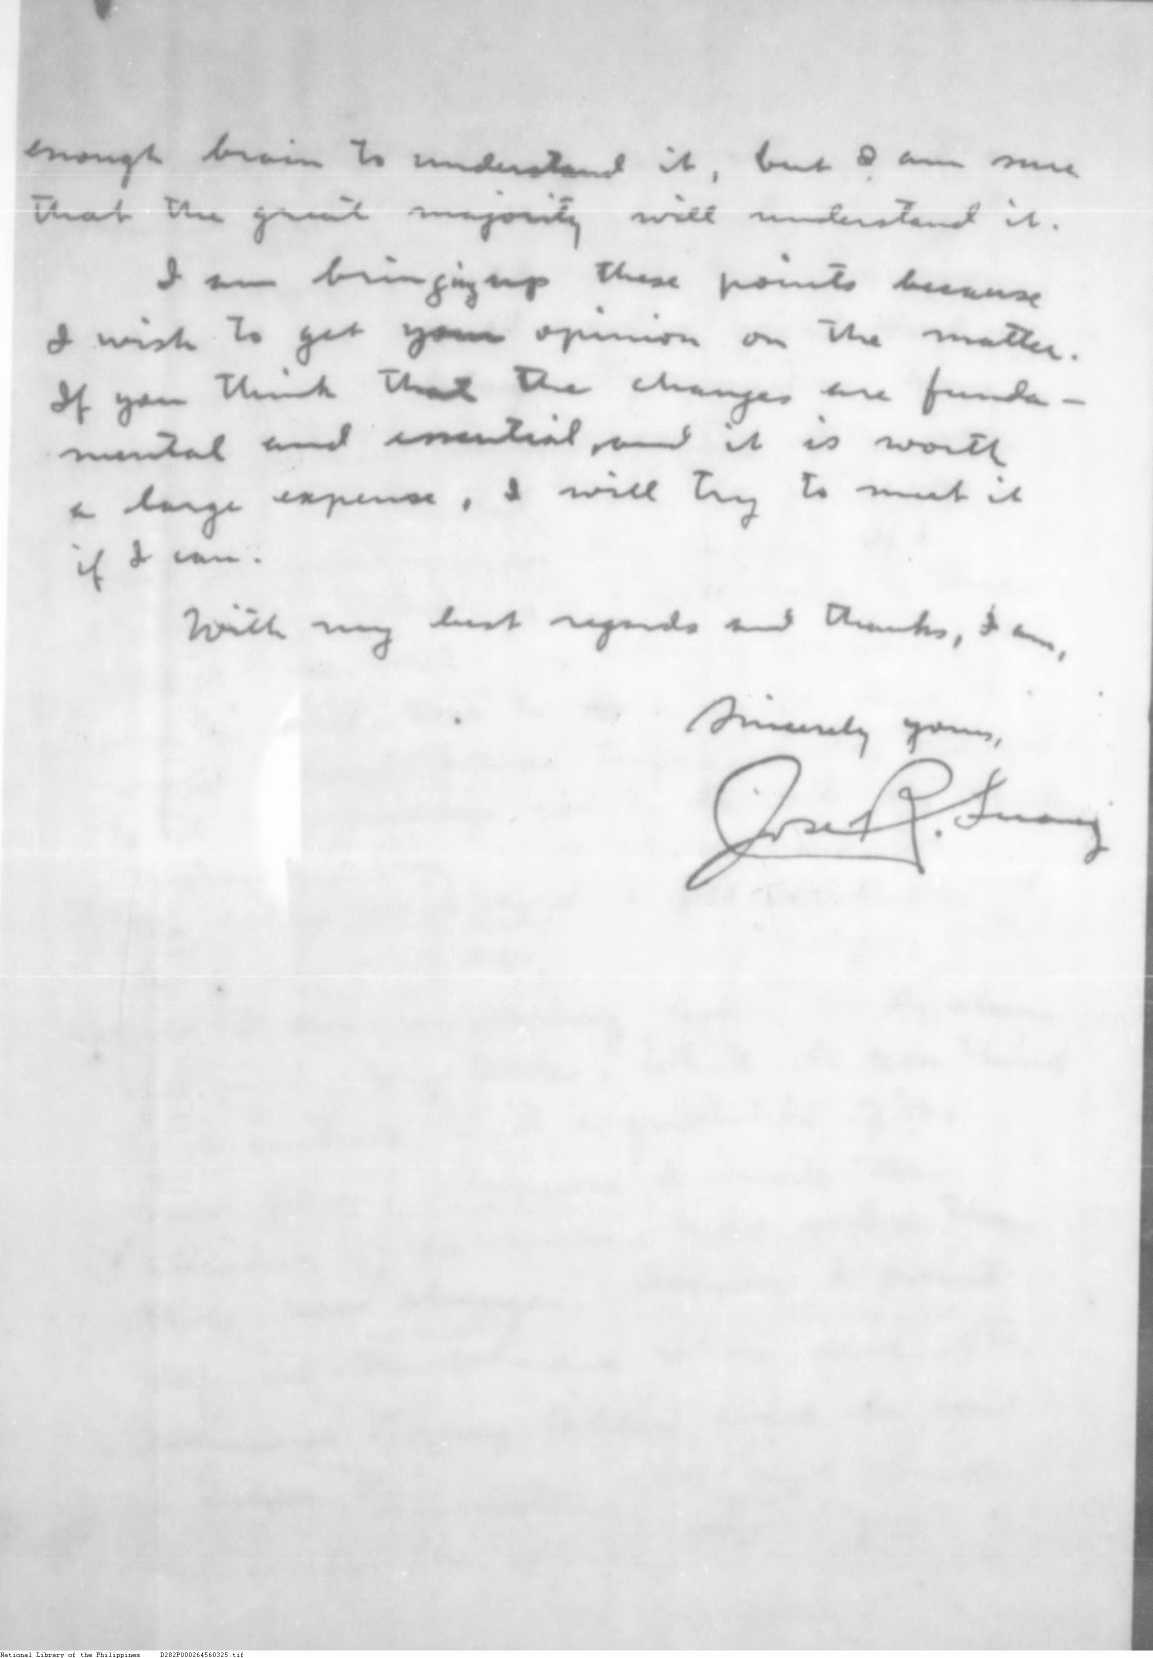 enough brain to understand it, but I am sure
that the great majority will understand it.
I am bringing up these points because
I wish to get your opinion on the matter.
If you think that the changes are funda-
mental and essential, and it is worth
a large expense, I will try to meet it
if I can.
With my best regards and thanks, I am,
Sincerely yours,
Jose R.
National Library of the Philippines D282P000264560325.tif